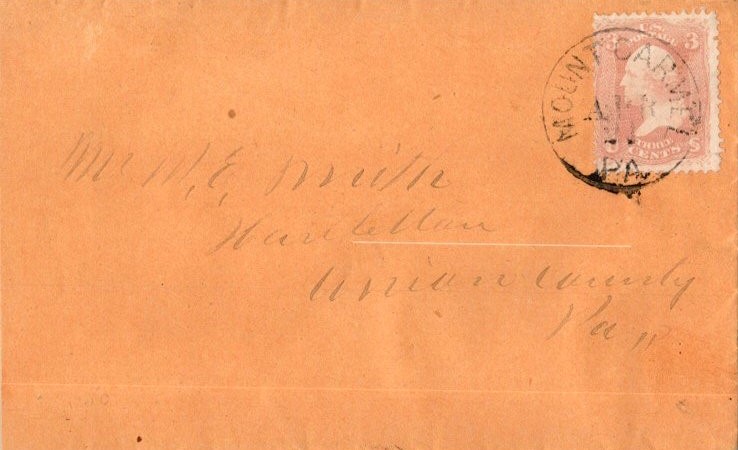 3 3
U S
THREE
CENTS
MOUNT CARMEL
PA
Mr W. E. Smith
Hartleton
Union County
Pa,,